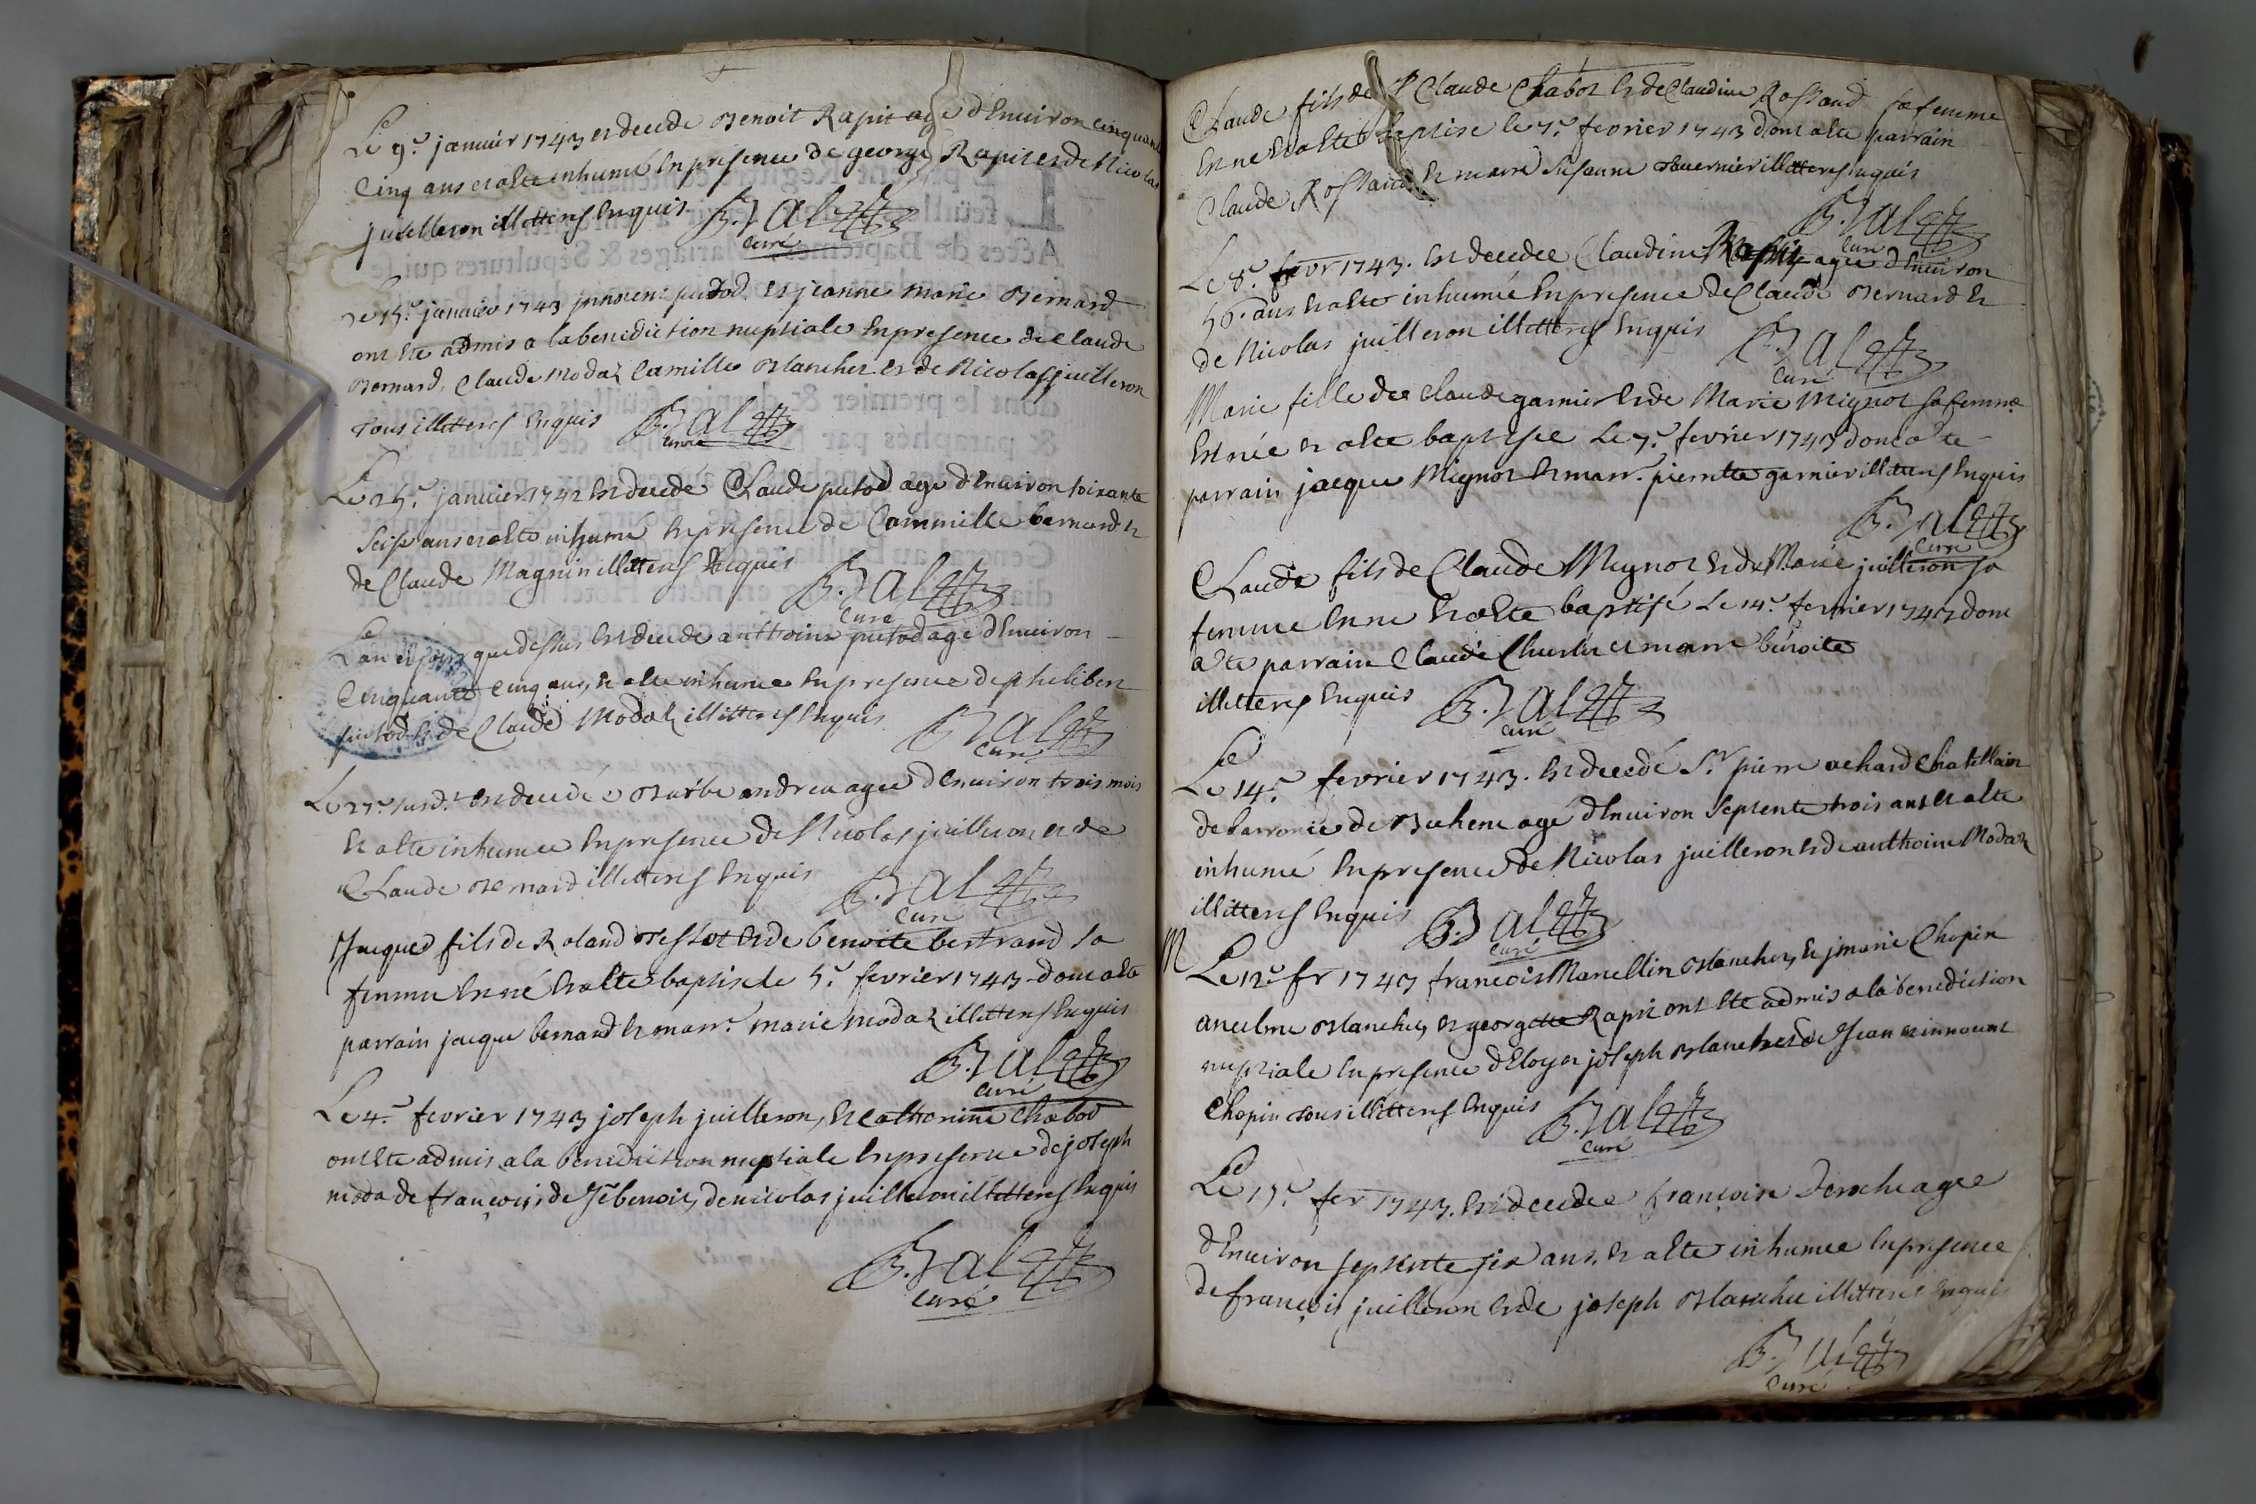 Le 9e janvier 1743 es decede Benoit Rapit agé d'Environ cinquante
cinq ans et a ete inhumé En presence de george Rapit et de Nicolas
juilleron illitterés Enquis B. Jal
curé
Le 15e janvier 1743 innocent putod et jeanne marie Bernard
ont ete admis a la benediction nuptiale En presence de Claude
Bernard, Claude modaz Camille Blanchet et de Nicolas juilleron
tous illitterés Enquis B. Jal
curé
Le 25e janvier 1742 Est decedé Claude putod agé d'Environ soixante
seise ans et a ete inhumé En presence de Cammille bernard et
de Claude Magnin illitterés Enquis B. Jal
curé
L'an et jour que dessus Est decedé anthoine putod agé d'Environ
cinquante cinq ans, Et a ete inhumé En presence de philibert
putod Et de Claude Modaz illitterés Enquis B. Jal
curé
Le 27e susd. est decedée Barbe andrea agée d'Environ trois mois
Et a ete inhumée En presence de Nicolas juilleron et de
Claude Bernard illitterés Enquis B. Jal
curé
Jacque fils de Roland Bessot Et de benoite bertrand sa
femme Est né Et a ete baptisé le 5e fevrier 1743 dont a ete
parrain jacque bernard Et marr. marie modaz illitterés Enquis
B. Jal
curé
Le 4e fevrier 1743 joseph juilleron, Et catherine chabod
ont Ete admis a la benediction nuptiale En presence de joseph
moda de françois, de benoit, de nicolas juilleron illitterés Enquis
B. Jal
curé
Claude fils de Claude Chabot Et de Claudine Rossand sa femme
Est né Et a ete baptisé le 7e fevrier 1743 dont a ete parrain
Claude Rossand Et marr. illitterés Enquis
B. Jal
curé
Le 8e fevr 1743. Est decedée Claudine Rapit agée d'Environ
56. ans Et a ete inhumée En presence de Claude Bernard Et
de Nicolas juilleron illitterés Enquis B. Jal
curé
Marie fille de Claude garnier Et de Marie Mignot sa femme
Est née et a ete baptisée Le 7e fevrier 1743 dont a ete
parrain jacque Mignot Et marr. pierrette garnier illitterés Enquis
B. Jal
curé
Claude fils de Claude Mignot Et de Marie juilleron sa
femme Est né Et a Ete baptisé Le 14e fevrier 1743 dont
a ete parrain Claude et marr benoite
illitterés Enquis B. Jal
curé
Le
Le 14e fevrier 1743. Est decedé Sr pierre achard Chatellain
de barronie de agé d'Environ septente trois ans Et a ete
inhumé En presence de Nicolas juilleron Et de anthoine Modaz
illitterés Enquis B. Jal
curé
M
Le 12e fr 1743 francois Marcellin Blanchet, Et marie Chopin
ancelme Blanchet, Et georgette Rapit ont Ete admis a la benediction
nuptiale En presence d'Eloy et joseph Blanchet de Jean et innocent
Chopin tous illitterés Enquis B. Jal
curé
Le 15e fev 1743. Est decedée françoise agée
d'Environ septente six ans, Et a ete inhumée En presence
de françois juilleron Et de joseph Blanchet illitterés Enquis
B. Jal
curé